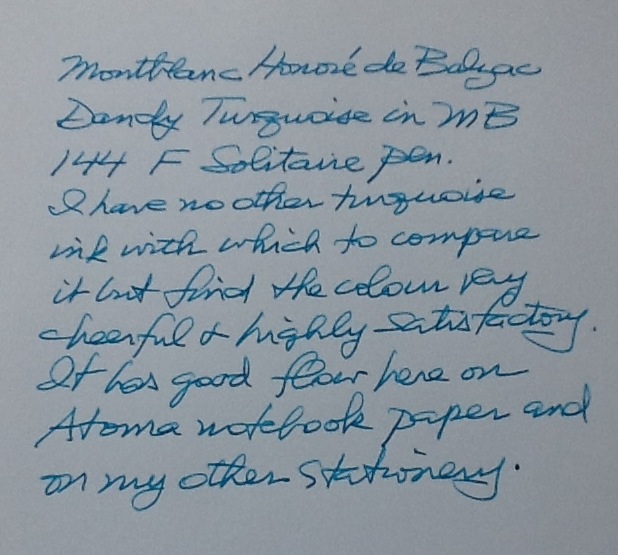 Montblanc Honoré de Balzac
Dandy Turquoise in MB
144 F Solitaire pen.
I have no other turquoise
ink with which to compare
it but find the colour very
cheerful & highly satisfactory.
It has good flow here on
Atoma notebook paper and
on my other stationery.